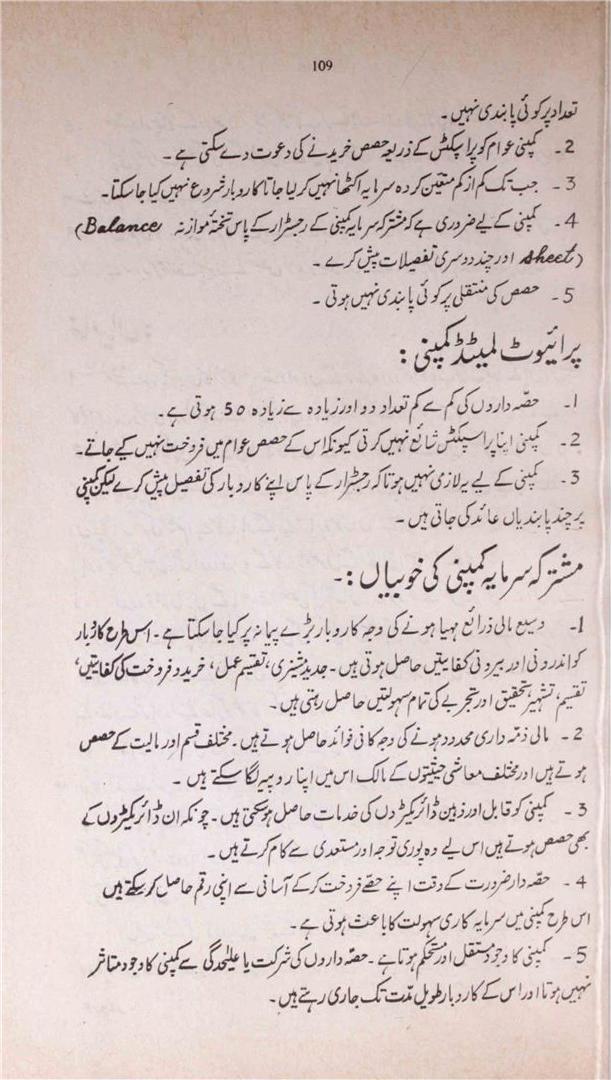 109
تعداد پر کوئی پابندی نہیں۔
2۔ کمپنی عوام کو پراسپکٹس کے ذریعہ حصص خریدنے کی دعوت دے سکتی ہے۔
3۔ جب تک کم از کم متعین کردہ سرمایہ اکٹھا نہیں کر لیا جاتا کاروبار شروع نہیں کیا جاسکتا۔
4۔ کمپنی کے لیے ضروری ہے کہ مشترکہ سرمایہ کمپنی کے رجسٹرار کے پاس تختۂ موازنہ (Balance
sheet) اور چند دوسری تفصیلات پیش کرے۔
5۔ حصص کی منتقلی پر کوئی پابندی نہیں ہوتی۔
پرائیوٹ لمیٹڈ کمپنی:
1۔ حصّہ داروں کی کم سے کم تعداد دو اور زیادہ سے زیادہ 50 ہوتی ہے۔
2۔ کمپنی اپنا پراسپکٹس شائع نہیں کرتی کیونکہ اس کے حصص عوام میں فروخت نہیں کیے جاتے۔
3۔ کمپنی کے لیے یہ لازمی نہیں ہوتا کہ رجسٹرار کے پاس اپنے کاروبار کی تفصیل پیش کرے لیکن کمپنی
پر چند پابندیاں عائد کی جاتی ہیں۔
مشترکہ سرمایہ کمپنی کی خوبیاں:۔
1۔ وسیع مالی ذرائع مہیا ہونے کی وجہ کاروبار بڑے پیمانہ پر کیا جاسکتا ہے۔ اس طرح کاروبار
کو اندرونی اور بیرونی کفایتیں حاصل ہوتی ہیں۔ جدید مشینری، تقسیم عمل، خرید و فروخت کی کفایتیں،
تقسیم، تشہیر، تحقیق اور تجربے کی تمام سہولتیں حاصل رہتی ہیں۔
2۔ مالی ذمّہ داری محدود ہونے کی وجہ کافی فوائد حاصل ہوتے ہیں۔ مختلف قسم اور مالیت کے حصص
ہوتے ہیں اور مختلف معاشی حیثیتوں کے مالک اس میں اپنا روپیہ لگا سکتے ہیں۔
3۔ کمپنی کو قابل اور ذہین ڈائریکٹروں کی خدمات حاصل ہوسکتی ہیں۔ چونکہ ان ڈائریکٹروں کے
بھی حصص ہوتے ہیں اس لیے وہ پوری توجہ اور مستعدی سے کام کرتے ہیں۔
4۔ حصّہ دار ضرورت کے وقت اپنے حصّے فروخت کرکے آسانی سے اپنی رقم حاصل کرسکتے ہیں
اس طرح کمپنی میں سرمایہ کاری سہولت کا باعث ہوتی ہے۔
5۔ کمپنی کا وجود مستقل اور مستحکم ہوتا ہے۔ حصّہ داروں کی شرکت یا علیٰحدگی سے کمپنی کا وجود متاثر
نہیں ہوتا اور اس کے کاروبار طویل مدّت تک جاری رہتے ہیں۔